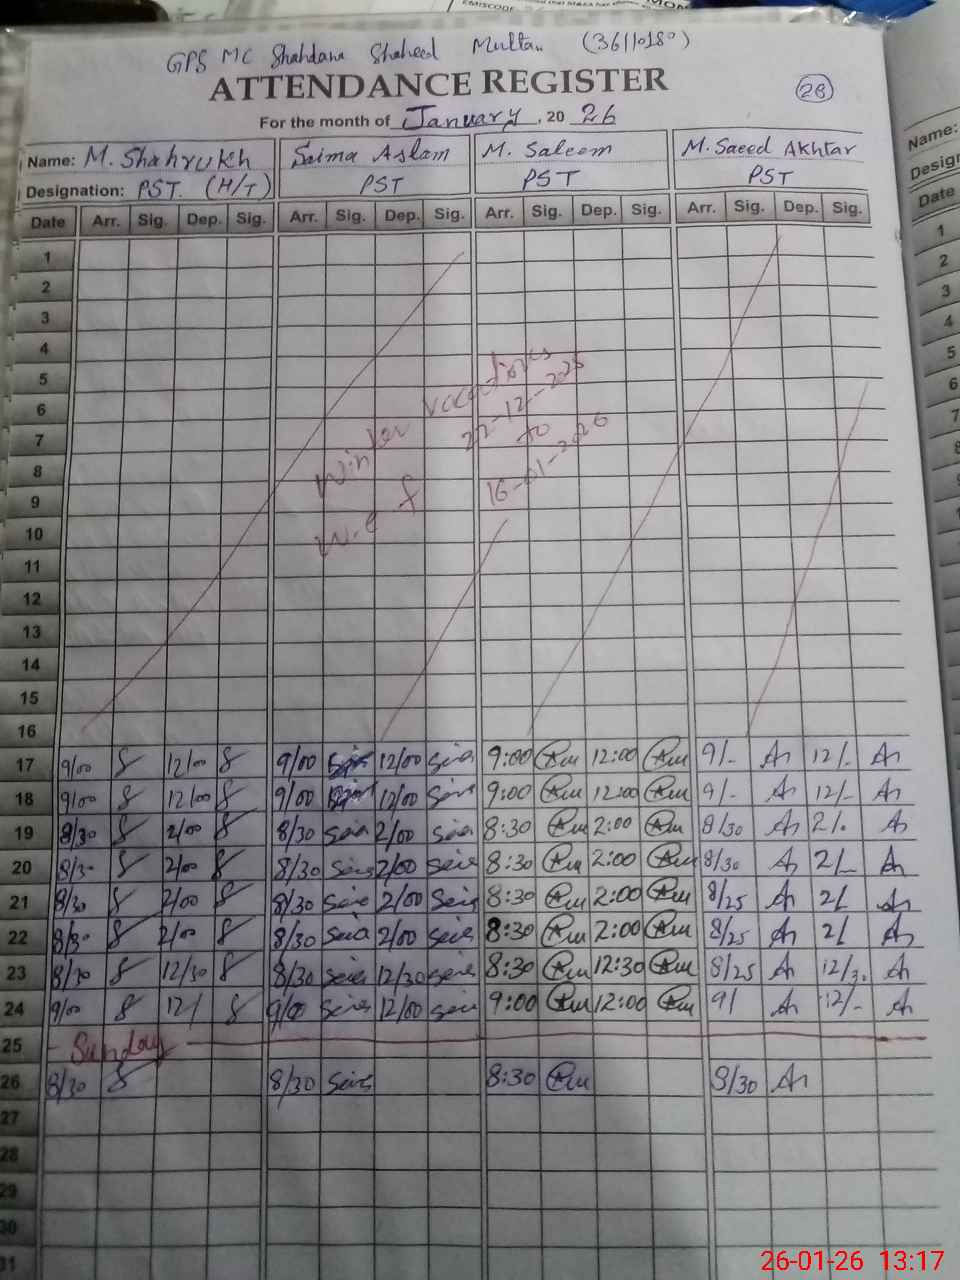 EMISCODE
GPS MC Shahdana Shaheed Multan (36110180)
ATTENDANCE REGISTER
28
For the month of January, 20 26
Name: M. Shahrukh Saima Aslam M. Saleem M. Saeed Akhtar
Designation: PST (H/T) PST PST PST
Date Arr. Sig. Dep. Sig. Arr. Sig. Dep. Sig. Arr. Sig. Dep. Sig. Arr. Sig. Dep. Sig.
1
2
3
4
5
6
7
8
9
10
11
12
13
14
15
16
Winter vacations
w.e f 22-12-2025
to
16-01-2026
17 9/00 12/00 9/00 12/00 9:00 12:00 9/- 12/-
18 9/00 12/00 9/00 12/00 9:00 12:00 9/- 12/-
19 8/30 2/00 8/30 2/00 8:30 2:00 8/30 2/.
20 8/30 2/00 8/30 2/00 8:30 2:00 8/30 2/-
21 8/30 2/00 8/30 2/00 8:30 2:00 8/25 2/
22 8/30 2/00 8/30 2/00 8:30 2:00 8/25 2/
23 8/30 12/30 8/30 12/30 8:30 12:30 8/25 12/30
24 9/00 12/ 9/00 12/00 9:00 12:00 9/ 12/-
25 Sunday
26 8/30 8/30 8:30 8/30
27
28
29
30
31
Name:
Design
Date
1
2
3
4
5
6
7
8
9
10
11
12
13
14
15
26-01-26 13:17